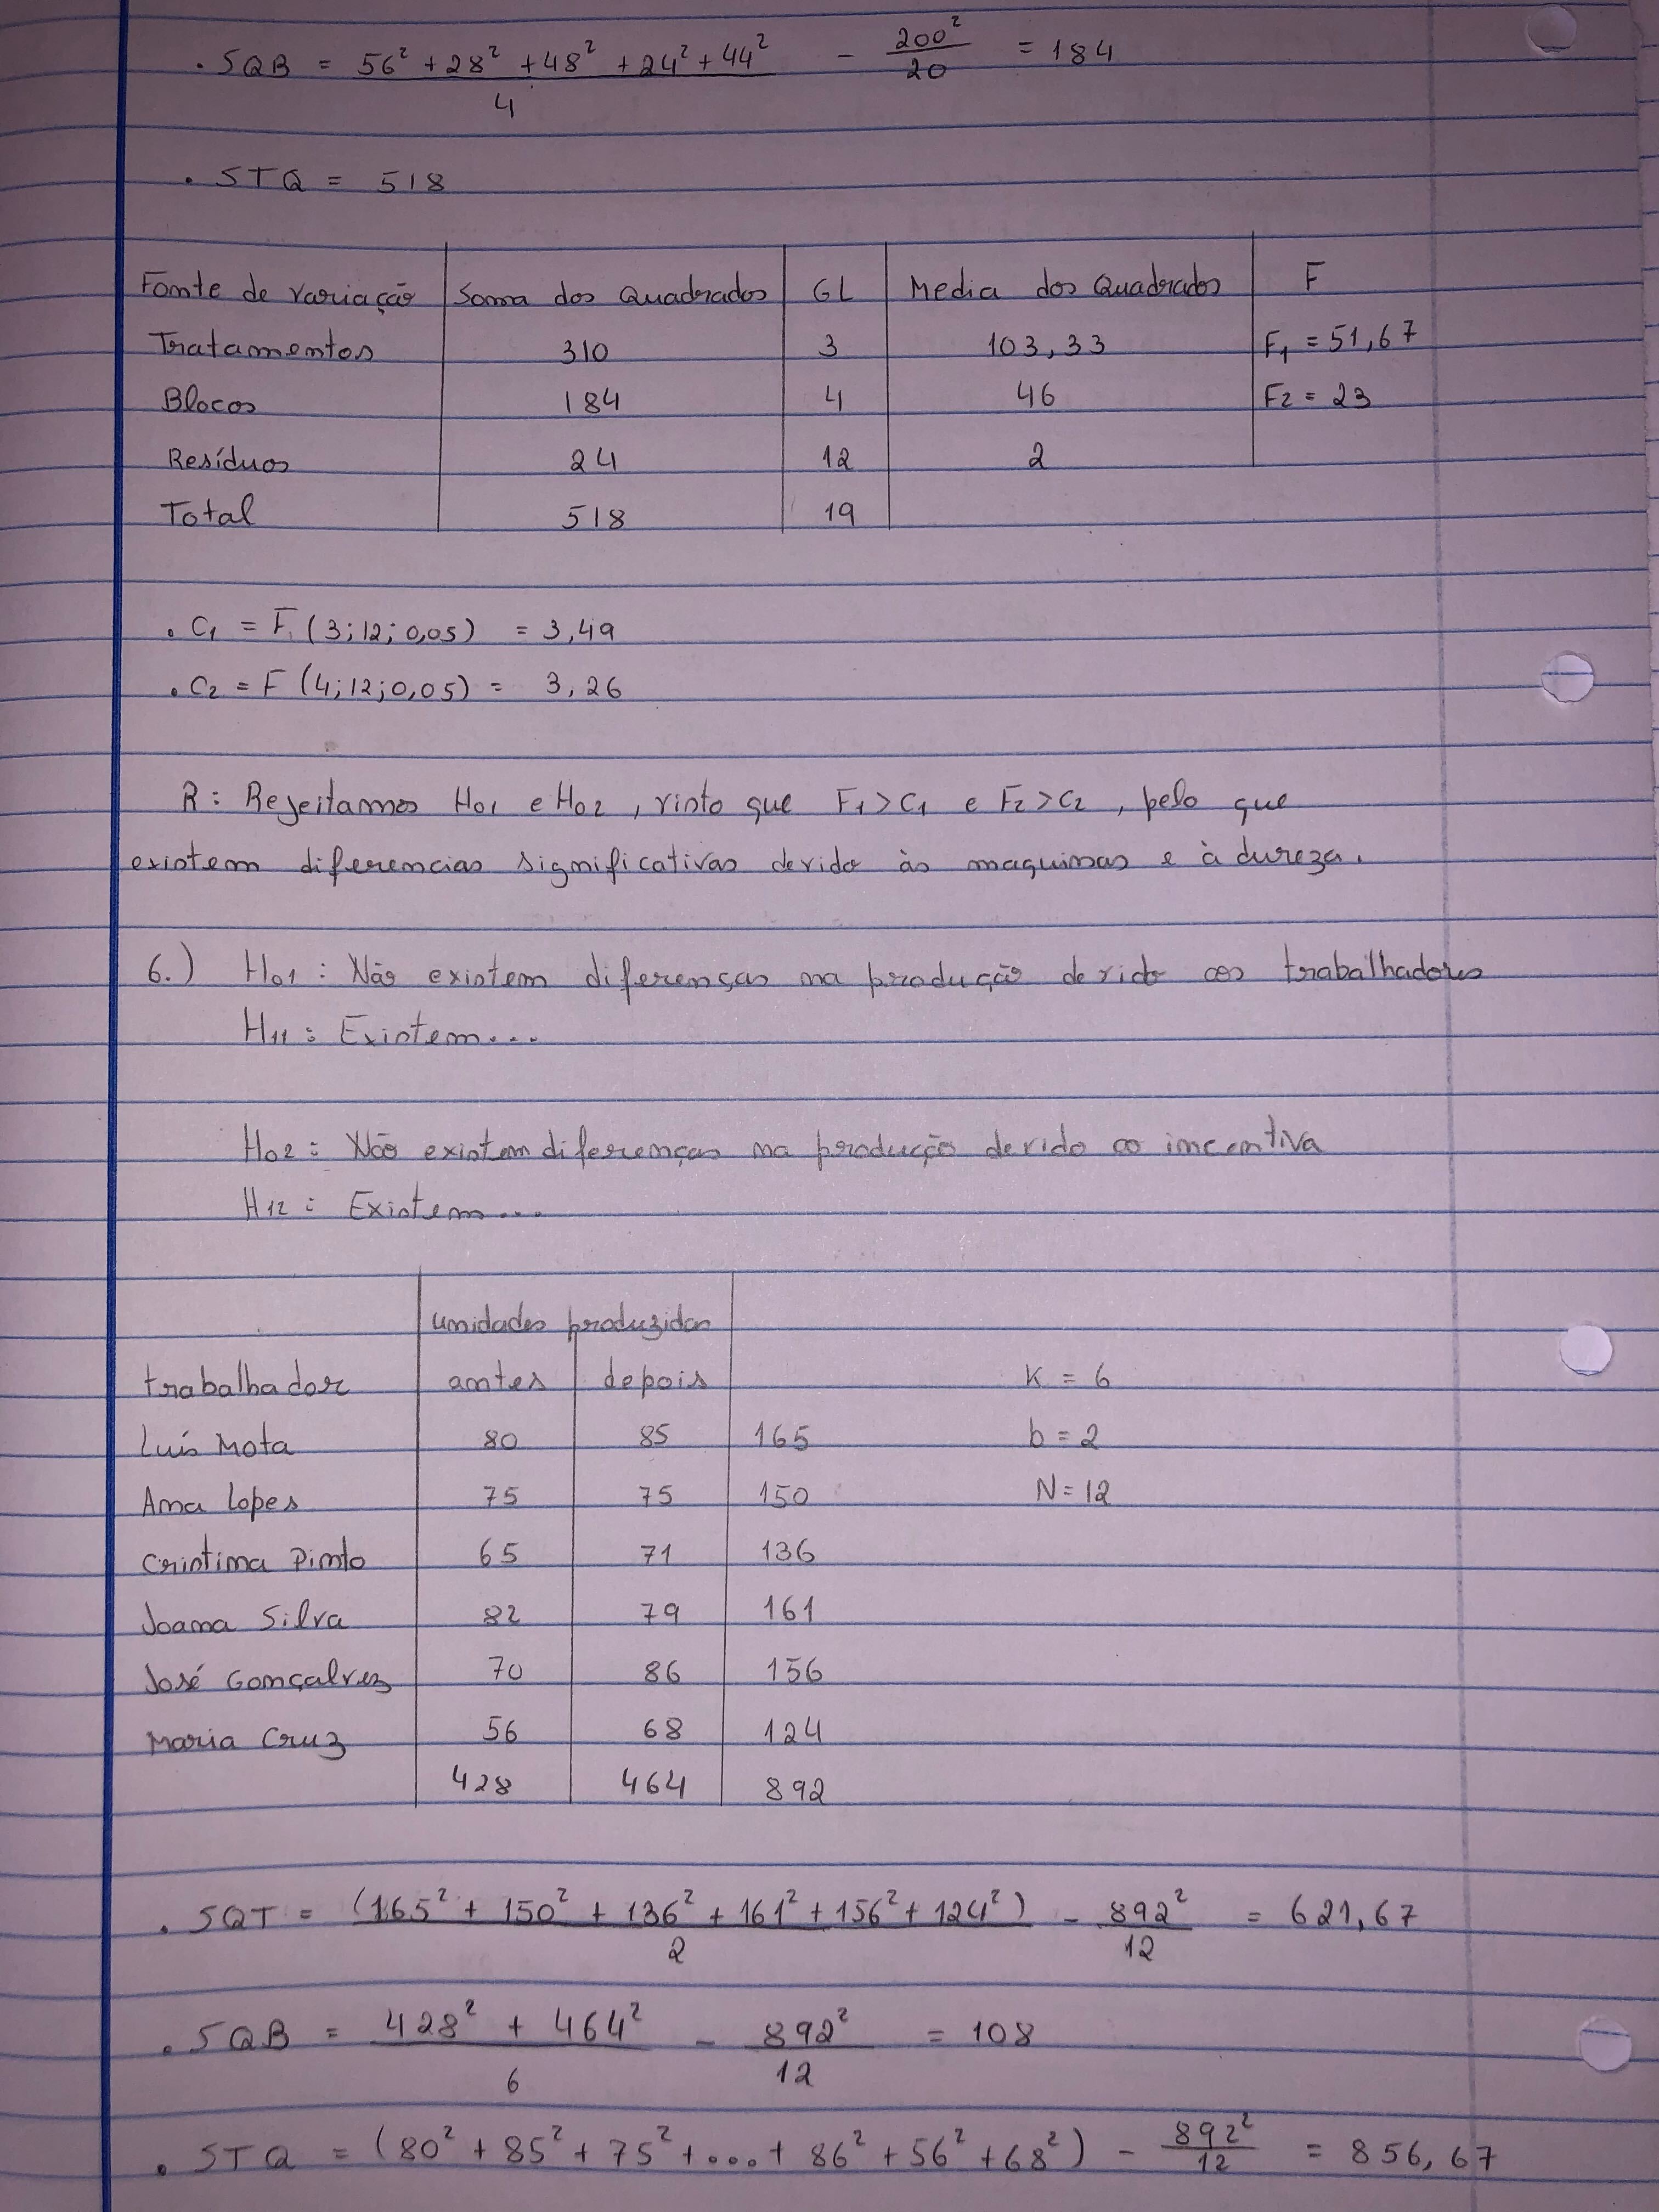 . SQB = 56² + 28² + 48² + 24² + 44² / 4 - 200² / 20 = 184
. STQ = 518
Fonte de variação | Soma dos Quadrados | GL | Media dos Quadrados | F
Tratamentos | 310 | 3 | 103,33 | F₁ = 51,67
Blocos | 184 | 4 | 46 | F₂ = 23
Resíduos | 24 | 12 | 2
Total | 518 | 19
. C₁ = F (3;12;0,05) = 3,49
. C₂ = F (4;12;0,05) = 3,26
R: Rejeitamos H₀₁ e H₀₂, visto que F₁>C₁ e F₂>C₂, pelo que
existem diferencias significativas devido às maquinas e à dureza.
6.) H₀₁ : Não existem diferenças na produção devido aos trabalhadores
H₁₁ : Existem...
H₀₂ : Não existem diferenças na produção devido ao incentiva
H₁₂ : Existem...
unidades produzidas
trabalhador | antes | depois | K = 6
Luís Mota | 80 | 85 | 165 b = 2
Ana Lopes | 75 | 75 | 150 N = 12
Cristina Pinto | 65 | 71 | 136
Joana Silva | 82 | 79 | 161
José Gonçalvez | 70 | 86 | 156
Maria Cruz | 56 | 68 | 124
428 | 464 | 892
. SQT = (165² + 150² + 136² + 161² + 156² + 124²) / 2 - 892² / 12 = 621,67
. SQB = 428² + 464² / 6 - 892² / 12 = 108
. STQ = (80² + 85² + 75² + ... + 86² + 56² + 68²) - 892² / 12 = 856,67